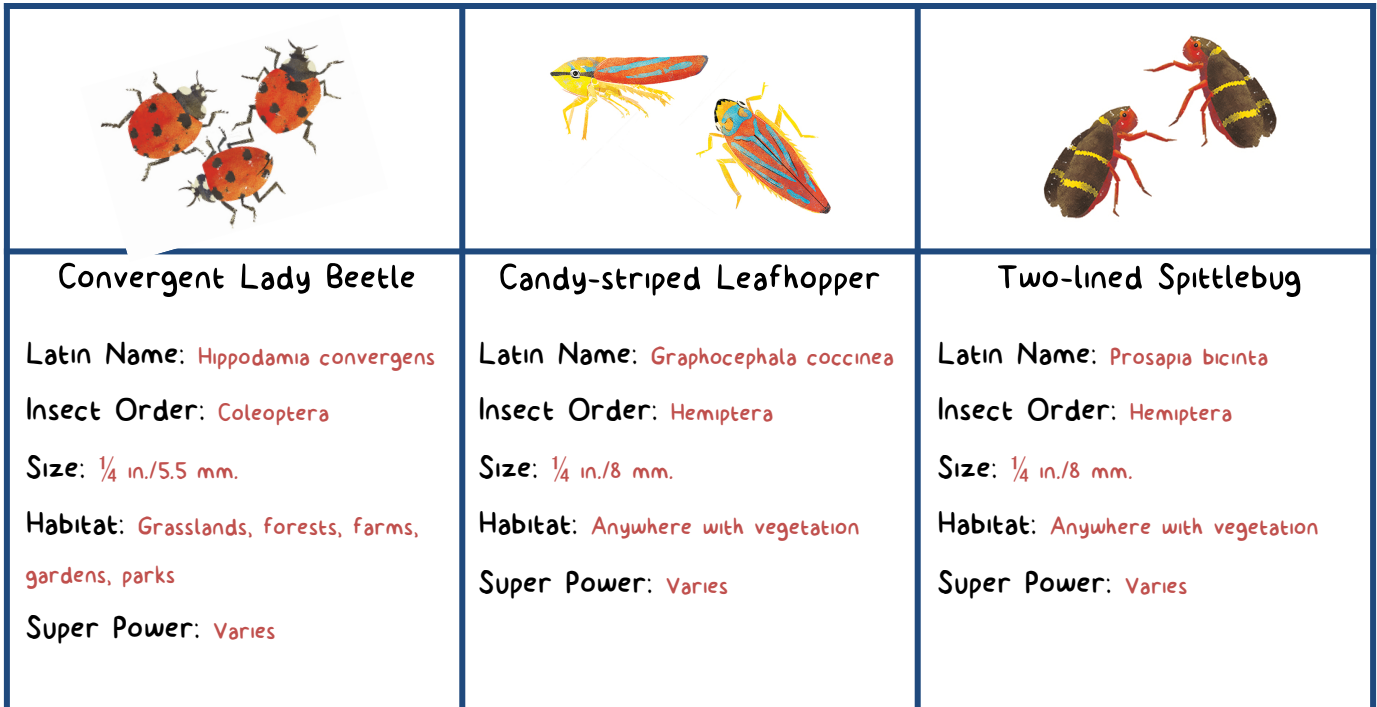 Convergent Lady Beetle
Latin Name: Hippodamia convergens
Insect Order: Coleoptera
Size: ¼ in./5.5 mm.
Habitat: Grasslands, forests, farms,
gardens, parks
Super Power: Varies
Candy-striped Leafhopper
Latin Name: Graphocephala coccinea
Insect Order: Hemiptera
Size: ¼ in./8 mm.
Habitat: Anywhere with vegetation
Super Power: Varies
Two-lined Spittlebug
Latin Name: Prosapia bicinta
Insect Order: Hemiptera
Size: ¼ in./8 mm.
Habitat: Anywhere with vegetation
Super Power: Varies